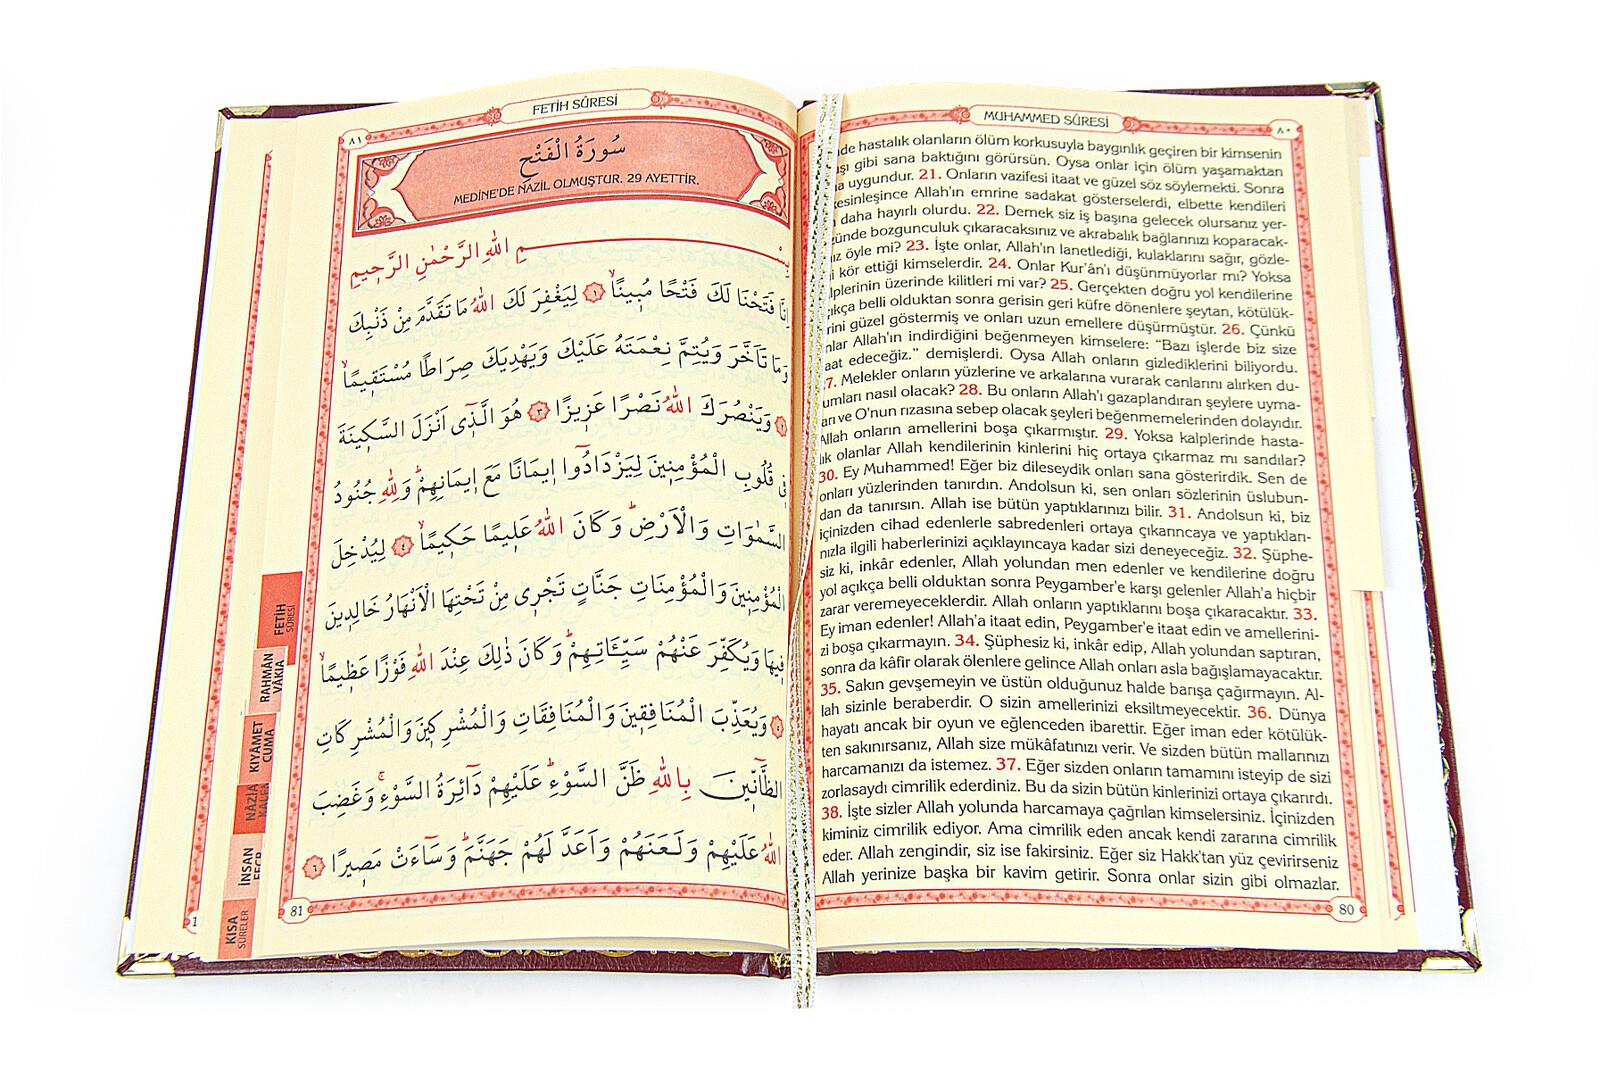 MUHAMMED SÛRESİ
٨٠
de hastalık olanların ölüm korkusuyla baygınlık geçiren bir kimsenin
gibi sana baktığını görürsün. Oysa onlar için ölüm yaşamaktan
uygundur. 21. Onların vazifesi itaat ve güzel söz söylemekti. Sonra
kesinleşince Allah'ın emrine sadakat gösterselerdi, elbette kendileri
daha hayırlı olurdu. 22. Demek siz iş başına gelecek olursanız yer-
yüzünde bozgunculuk çıkaracaksınız ve akrabalık bağlarınızı koparacak-
öyle mi? 23. İşte onlar, Allah'ın lanetlediği, kulaklarını sağır, gözle-
kör ettiği kimselerdir. 24. Onlar Kur'ân'ı düşünmüyorlar mı? Yoksa
kalplerinin üzerinde kilitleri mi var? 25. Gerçekten doğru yol kendilerine
açıkça belli olduktan sonra gerisin geri küfre dönenlere şeytan, kötülük-
güzel göstermiş ve onları uzun emellere düşürmüştür. 26. Çünkü
onlar Allah'ın indirdiğini beğenmeyen kimselere: “Bazı işlerde biz size
edeceğiz.” demişlerdi. Oysa Allah onların gizlediklerini biliyordu.
27. Melekler onların yüzlerine ve arkalarına vurarak canlarını alırken du-
rumları nasıl olacak? 28. Bu onların Allah'ı gazaplandıran şeylere uyma-
ve O'nun rızasına sebep olacak şeyleri beğenmemelerinden dolayıdır.
Allah onların amellerini boşa çıkarmıştır. 29. Yoksa kalplerinde hasta-
lık olanlar Allah kendilerinin kinlerini hiç ortaya çıkarmaz mı sandılar?
30. Ey Muhammed! Eğer biz dileseydik onları sana gösterirdik. Sen de
onları yüzlerinden tanırdın. Andolsun ki, sen onları sözlerinin üslubun-
dan da tanırsın. Allah ise bütün yaptıklarınızı bilir. 31. Andolsun ki, biz
içinizden cihad edenlerle sabredenleri ortaya çıkarıncaya ve yaptıkları-
nızla ilgili haberlerinizi açıklayıncaya kadar sizi deneyeceğiz. 32. Şüphe-
siz ki, inkâr edenler, Allah yolundan men edenler ve kendilerine doğru
yol açıkça belli olduktan sonra Peygamber'e karşı gelenler Allah'a hiçbir
zarar veremeyeceklerdir. Allah onların yaptıklarını boşa çıkaracaktır. 33.
Ey iman edenler! Allah'a itaat edin, Peygamber'e itaat edin ve amellerini-
zi boşa çıkarmayın. 34. Şüphesiz ki, inkâr edip, Allah yolundan saptıran,
sonra da kâfir olarak ölenlere gelince Allah onları asla bağışlamayacaktır.
35. Sakın gevşemeyin ve üstün olduğunuz halde barışa çağırmayın. Al-
lah sizinle beraberdir. O sizin amellerinizi eksiltmeyecektir. 36. Dünya
hayatı ancak bir oyun ve eğlenceden ibarettir. Eğer iman eder kötülük-
ten sakınırsanız, Allah size mükâfatınızı verir. Ve sizden bütün mallarınızı
harcamanızı da istemez. 37. Eğer sizden onların tamamını isteyip de sizi
zorlasaydı cimrilik ederdiniz. Bu da sizin bütün kinlerinizi ortaya çıkarırdı.
38. İşte sizler Allah yolunda harcamaya çağrılan kimselersiniz. İçinizden
kiminiz cimrilik ediyor. Ama cimrilik eden ancak kendi zararına cimrilik
eder. Allah zengindir, siz ise fakirsiniz. Eğer siz Hakk'tan yüz çevirirseniz
Allah yerinize başka bir kavim getirir. Sonra onlar sizin gibi olmazlar.
80
FETİH SÛRESİ
٨١
سُورَةُ الْفَتْحِ
MEDİNE'DE NAZİL OLMUŞTUR. 29 AYETTİR.
بِسْمِ اللهِ الرَّحْمٰنِ الرَّحِيمِ
اِنَّا فَتَحْنَا لَكَ فَتْحًا مُبِينًاۙ ١ لِيَغْفِرَ لَكَ اللهُ مَا تَقَدَّمَ مِنْ ذَنْبِكَ
وَمَا تَاَخَّرَ وَيُتِمَّ نِعْمَتَهُ عَلَيْكَ وَيَهْدِيَكَ صِرَاطًا مُسْتَقِيمًاۙ
٢ وَيَنْصُرَكَ اللهُ نَصْرًا عَزِيزًا ٣ هُوَ الَّذِٓى اَنْزَلَ السَّكِينَةَ
فِى قُلُوبِ الْمُؤْمِنِينَ لِيَزْدَادُٓوا اِيمَانًا مَعَ اِيمَانِهِمْۜ وَلِلهِ جُنُودُ
السَّمٰوَاتِ وَالْاَرْضِۜ وَكَانَ اللهُ عَلِيمًا حَكِيمًاۙ ٤ لِيُدْخِلَ
الْمُؤْمِنِينَ وَالْمُؤْمِنَاتِ جَنَّاتٍ تَجْرِى مِنْ تَحْتِهَا الْاَنْهَارُ خَالِدِينَ
فِيهَا وَيُكَفِّرَ عَنْهُمْ سَيِّـَٔاتِهِمْۜ وَكَانَ ذٰلِكَ عِنْدَ اللهِ فَوْزًا عَظِيمًاۙ
٥ وَيُعَذِّبَ الْمُنَافِقِينَ وَالْمُنَافِقَاتِ وَالْمُشْرِكِينَ وَالْمُشْرِكَاتِ
الظَّٓانِّينَ بِاللهِ ظَنَّ السَّوْءِۜ عَلَيْهِمْ دَٓائِرَةُ السَّوْءِۚ وَغَضِبَ
اللهُ عَلَيْهِمْ وَلَعَنَهُمْ وَاَعَدَّ لَهُمْ جَهَنَّمَۜ وَسَٓاءَتْ مَصِيرًا ٦
81
FETİH
SÛRESİ
RAHMÂN
VÂKIA
KIYÂMET
CUMA
İNSAN
KISA
SÛRELER